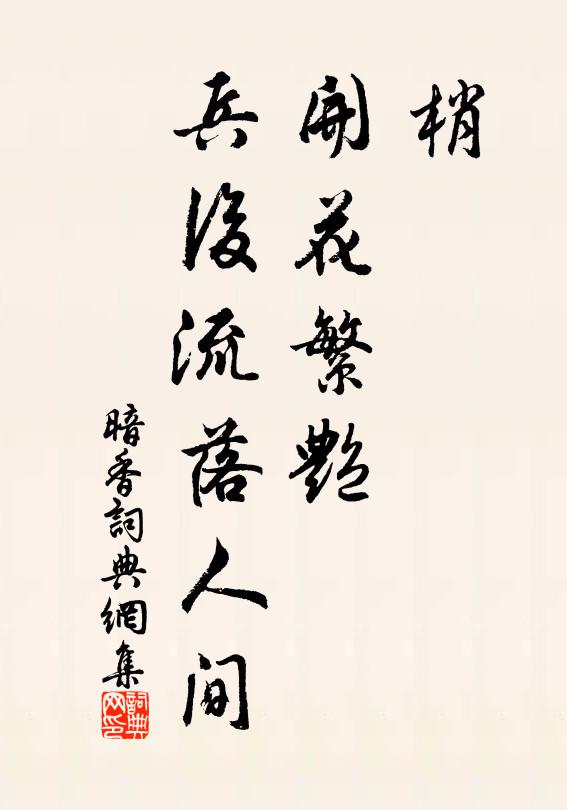 梢
開花繁艷
兵後流落人间
暗香詞典網集
詞典
网印